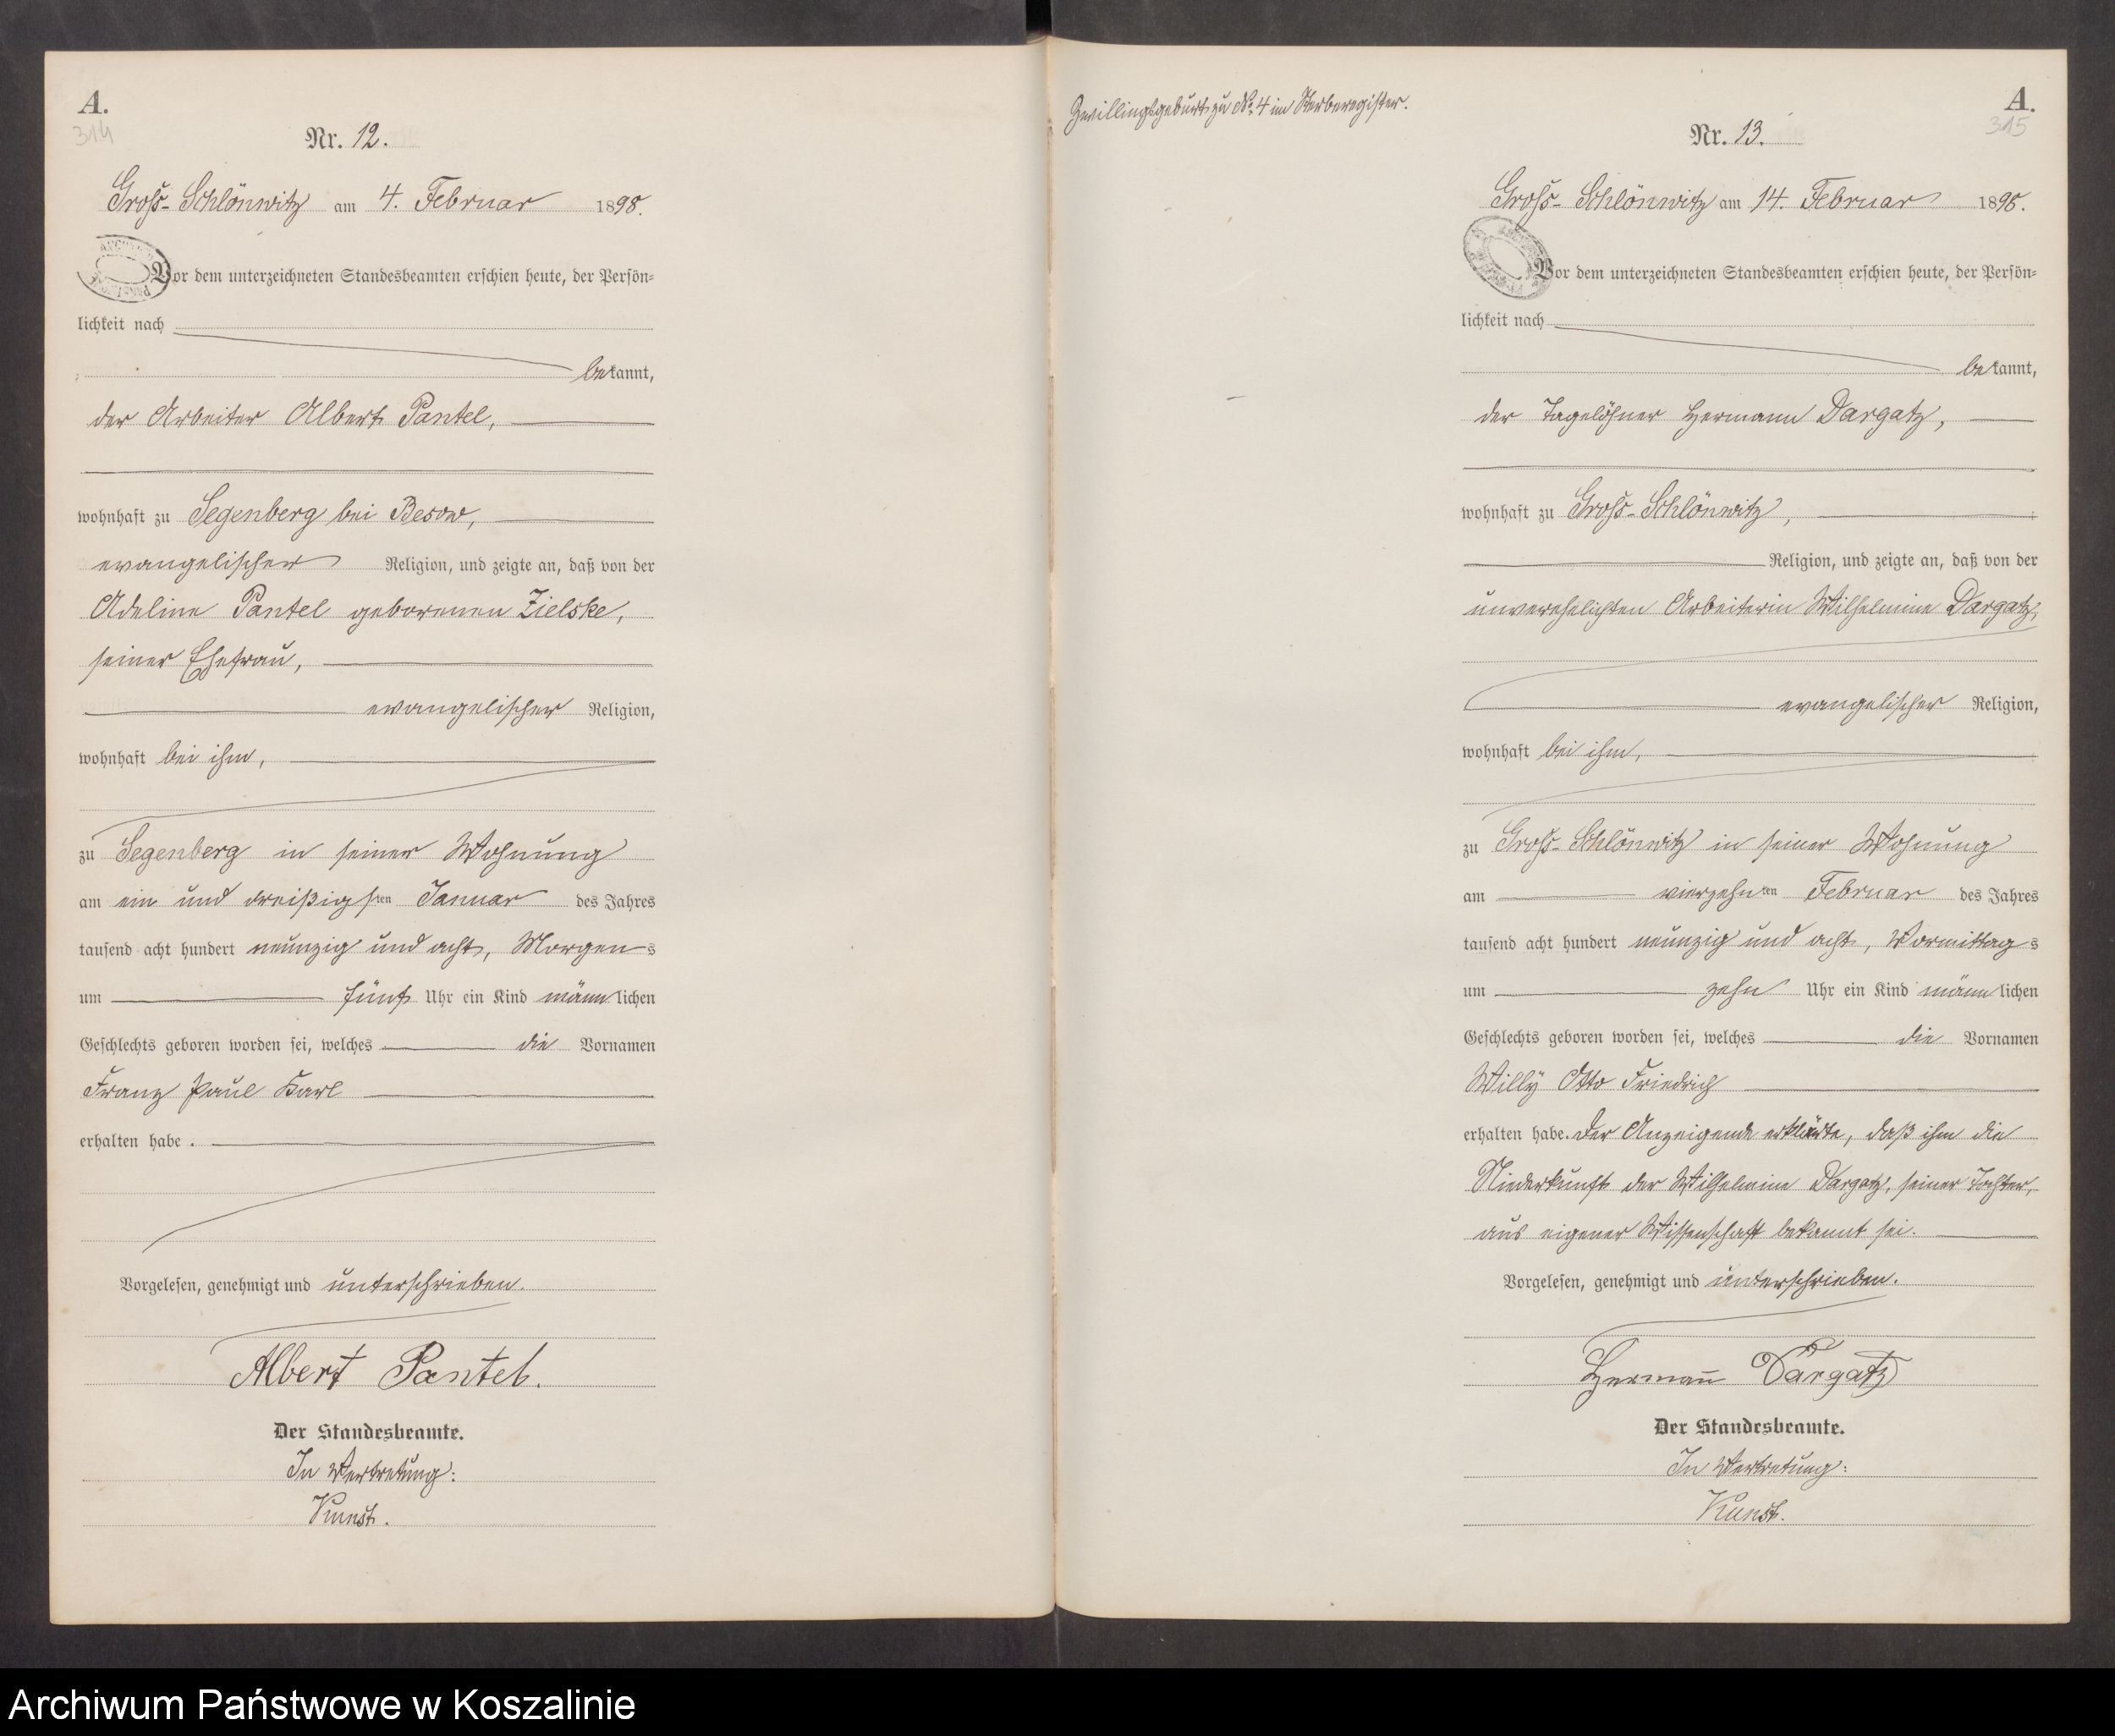 A.
314
Nr. 12.
Groß-Schlönwitz am 4. Februar 1898.
Vor dem unterzeichneten Standesbeamten erschien heute, der Persön=
lichkeit nach
bekannt,
der Arbeiter Albert Pantel,
wohnhaft zu Segenberg bei Besow,
evangelischer Religion, und zeigte an, daß von der
Adeline Pantel geborenen Zielske,
seiner Ehefrau,
evangelischer Religion,
wohnhaft bei ihm,
zu Segenberg in seiner Wohnung
am ein und dreißigsten Januar des Jahres
tausend acht hundert neunzig und acht, Morgens
um fünf Uhr ein Kind männlichen
Geschlechts geboren worden sei, welches die Vornamen
Franz Paul Karl
erhalten habe.
Vorgelesen, genehmigt und unterschrieben.
Albert Pantel.
Der Standesbeamte.
In Vertretung:
Kunst.
Zwillingsgeburt zu No. 4 im Sterberegister.
A.
315
Nr. 13.
Groß-Schlönwitz am 14. Februar 1898.
Vor dem unterzeichneten Standesbeamten erschien heute, der Persön=
lichkeit nach
bekannt,
der Tagelöhner Hermann Dargatz,
wohnhaft zu Groß-Schlönwitz,
Religion, und zeigte an, daß von der
unverehelichten Arbeiterin Wilhelmine Dargatz,
evangelischer Religion,
wohnhaft bei ihm,
zu Groß-Schlönwitz in seiner Wohnung
am vierzehnten Februar des Jahres
tausend acht hundert neunzig und acht, Vormittags
um zehn Uhr ein Kind männlichen
Geschlechts geboren worden sei, welches die Vornamen
Willy Otto Friedrich
erhalten habe. Der Anzeigende erklärte, daß ihm die
Niederkunft der Wilhelmine Dargatz, seiner Tochter,
aus eigener Wissenschaft bekannt sei.
Vorgelesen, genehmigt und unterschrieben.
Hermann Dargatz
Der Standesbeamte.
In Vertretung:
Kunst.
Archiwum Państwowe w Koszalinie